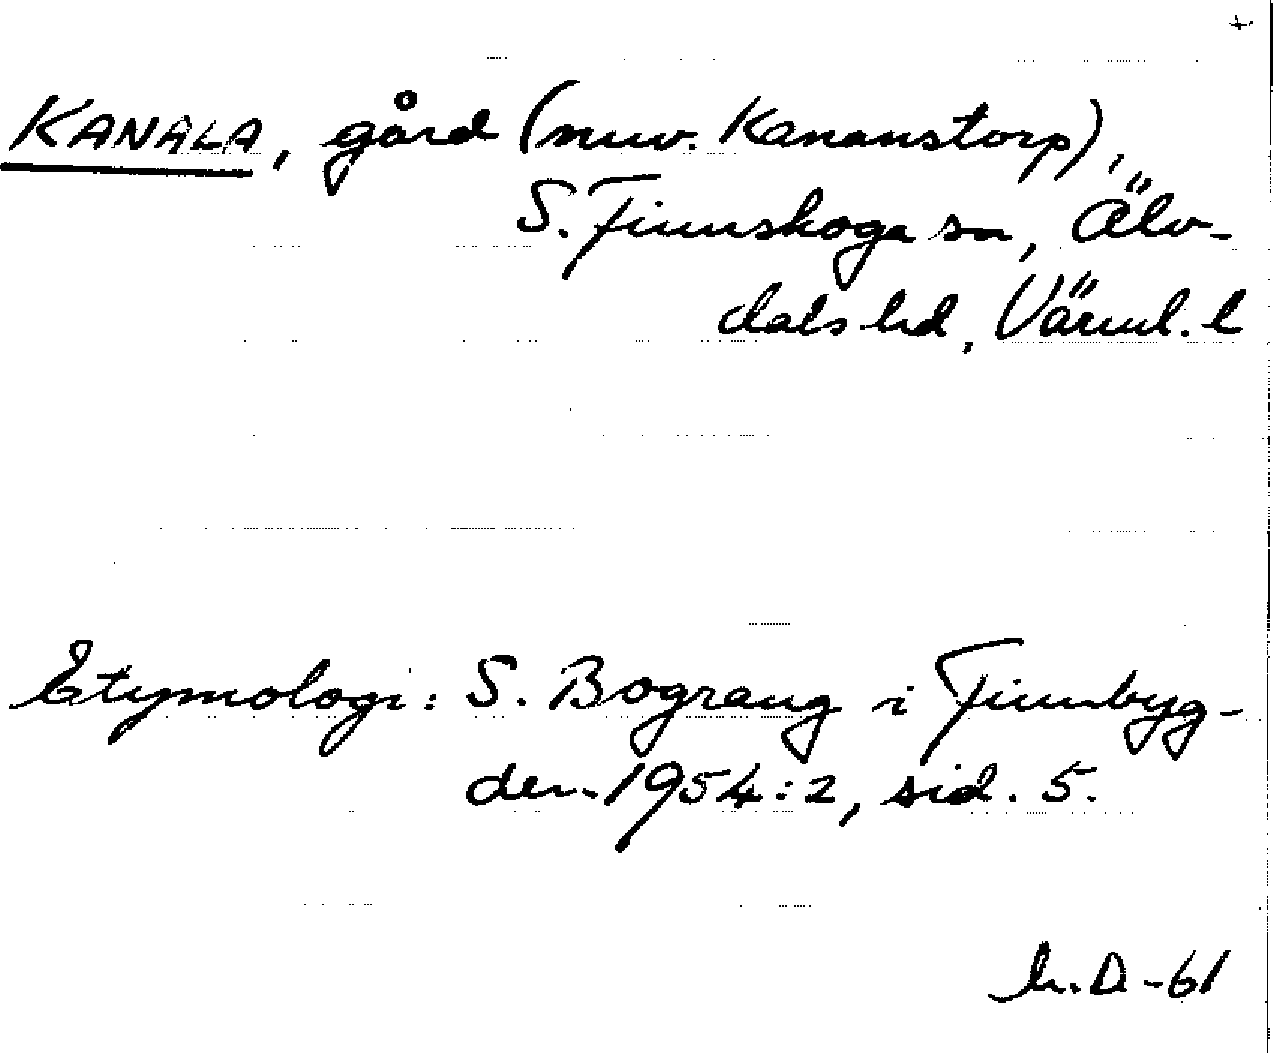 KANALA, gård (nuv. Kananstorp),
S. Finnskoga sn, Älv-
dals hd, Värml. l
Etymologi: S. Bograng i Finnbyg-
den 1954:2, sid. 5.
D-61